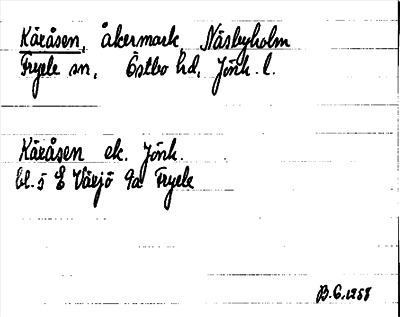 Käråsen, åkermark Näsbyholm
Fryele sn, Östbo hd, Jönk. l.
Käråsen ek. Jönk.
bl. 5 E Värjö 9a Fryele
B.G. 1958